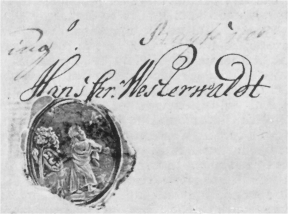 Hans Chr. Westerwaldt